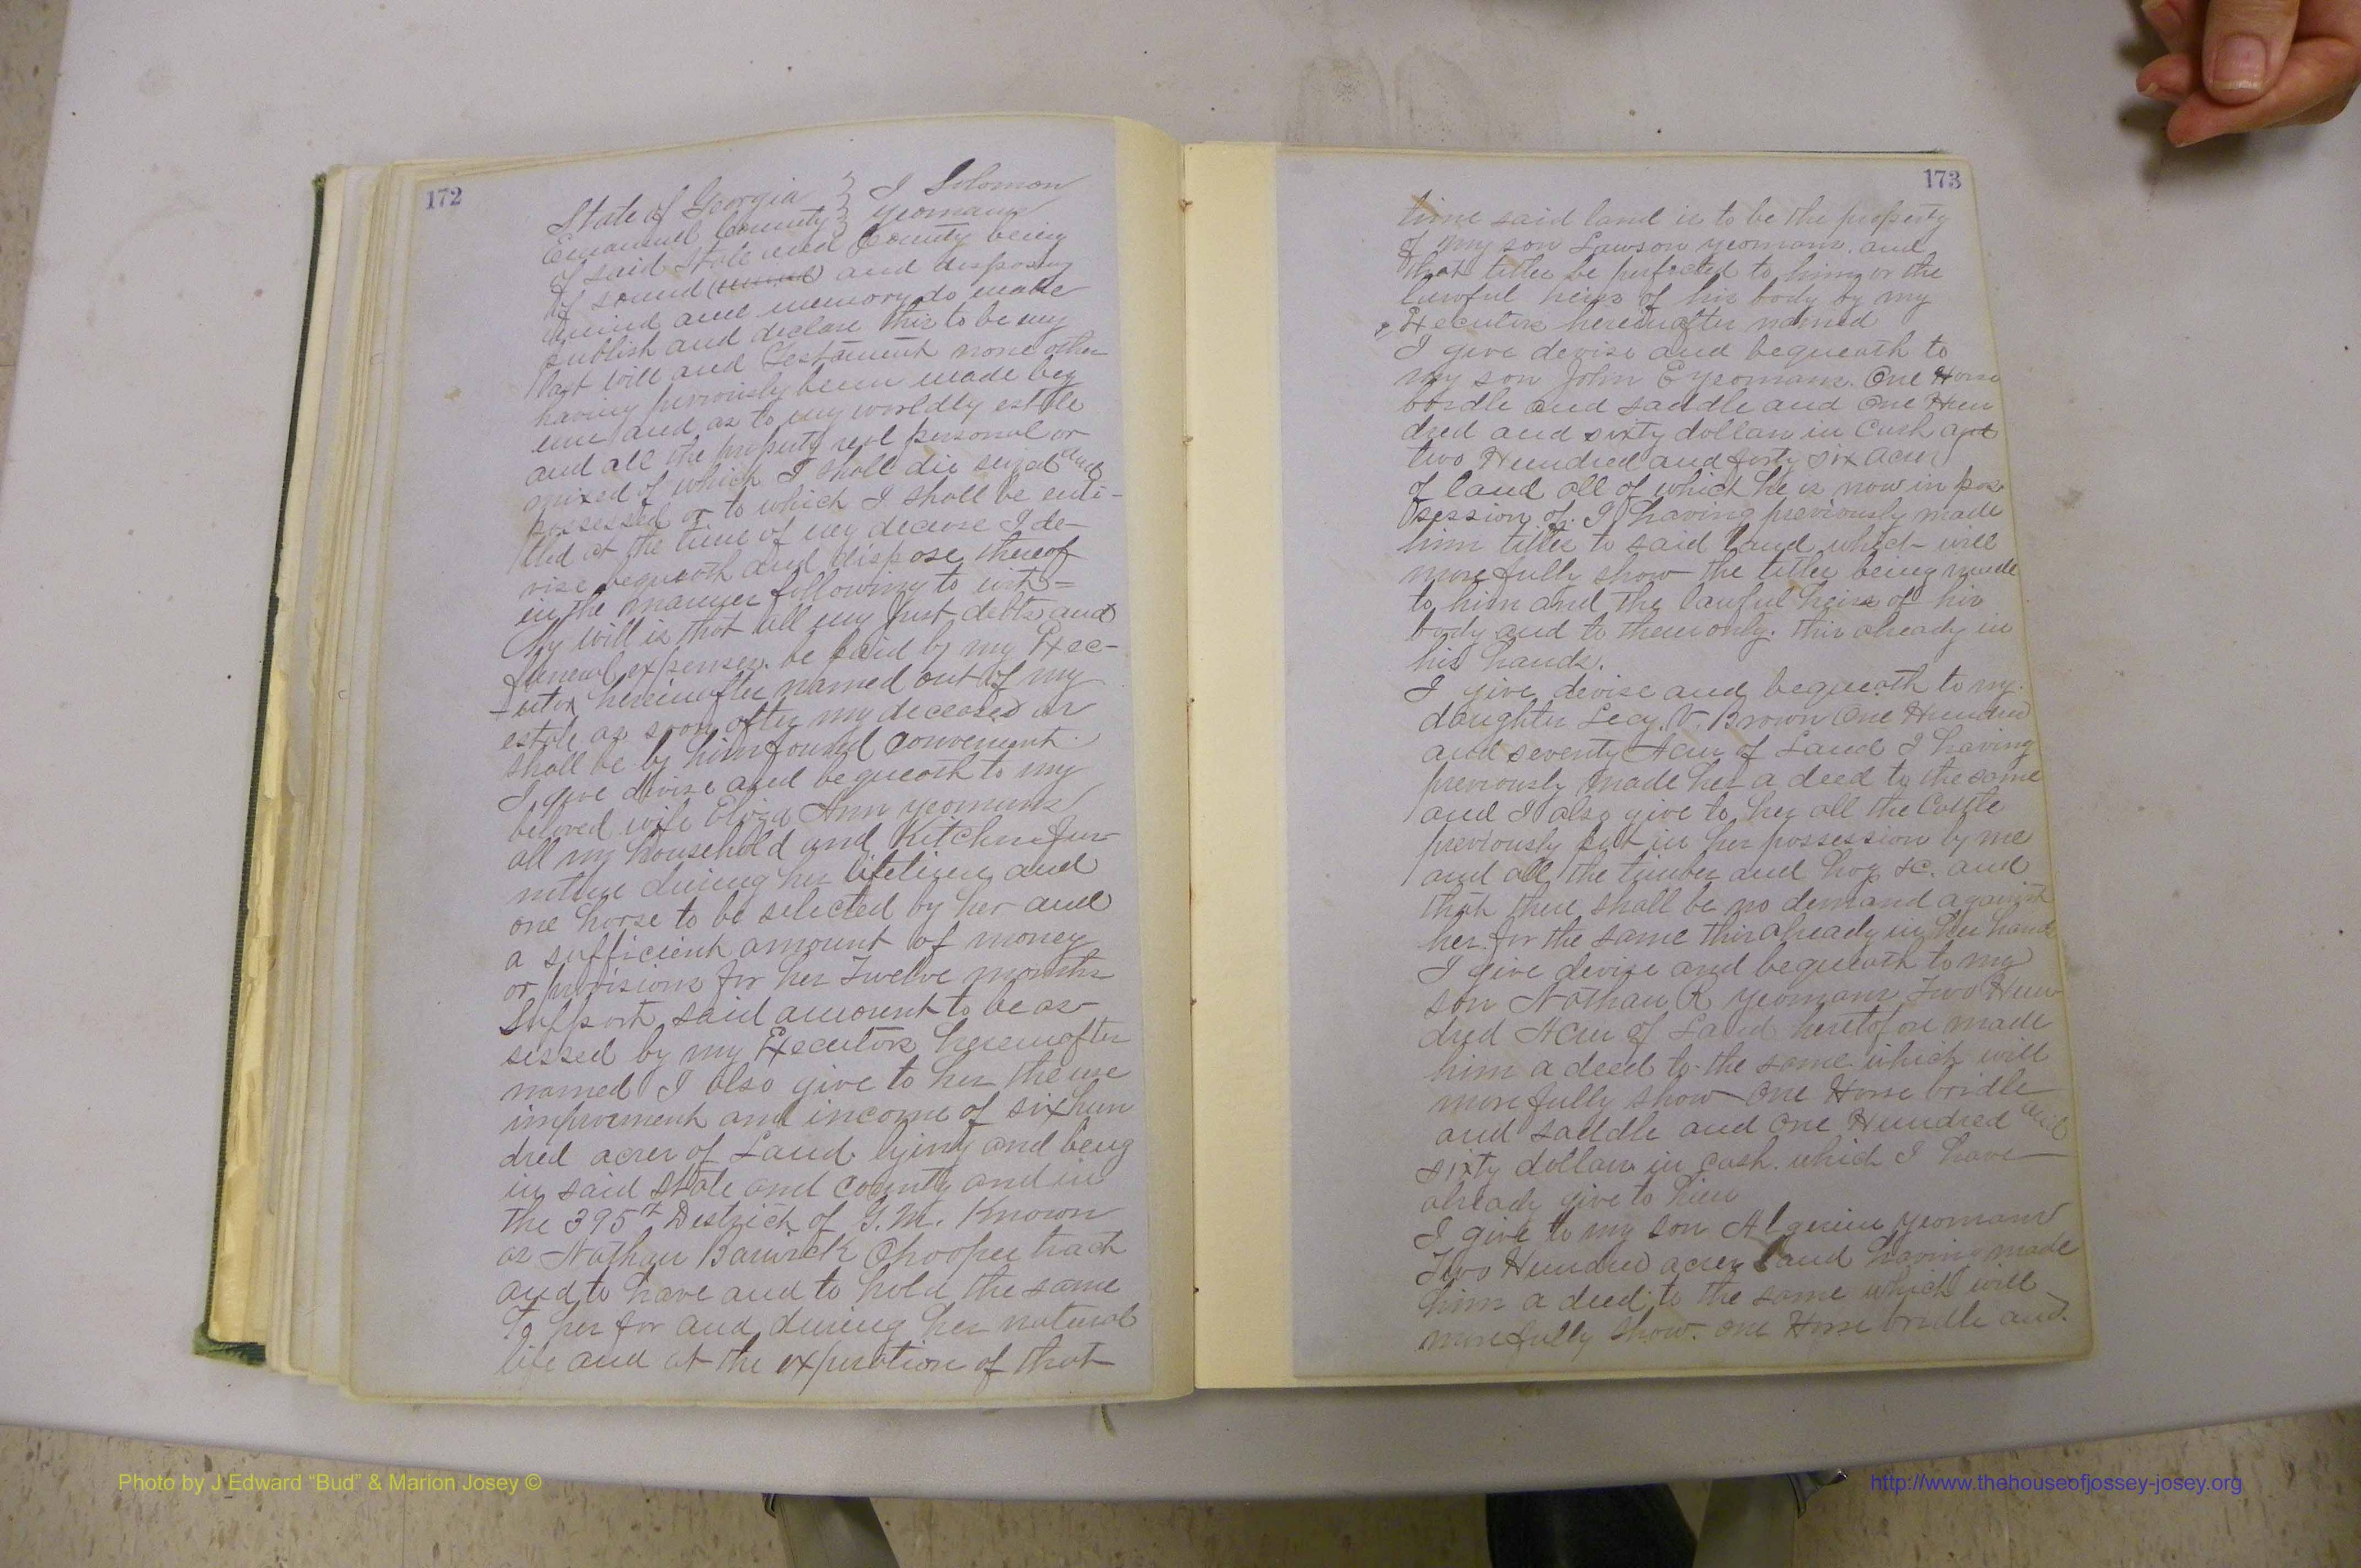 172
State of Georgia } I Solomon
Emanuel County } Yeomans
of said State and County being
of sound and disposing
mind and memory do make
publish and declare this to be my
last will and Testament none other
having perviously been made by
me and as to my worldly estate
and all the property real personal or
mixed of which I shall die seized and
possessed or to which I shall be enti-
tled at the time of my decease I de-
vise bequeath and dispose thereof
in the manner following to wit =
My will is that all my Just debts and
funeral expenses be paid by my Exec-
-utor hereinafter named out of my
estate as soon after my deceased as
shall be by him found convenient.
I give devise and bequeath to my
beloved wife Eliza Ann Yeomans
all my household and Kitchn fur
niture during her lifetime and
one horse to be selected by her and
a sufficient amount of money
or provisions for her Twelve months
support, said amount to be as
sessed by my Executors hereinafter
named I also give to her the use
improvement and income of six hun
dred acres of Land lying and being
in said State and County and in
the 395th District of G.M. Known
as Nathan Barwick Chooper tract
and to have and to hold the same
to her for and during her natural
life and at the expiration of that
173
time said land is to be the property
of my son Lawson Yeomans. and
that titles be perfected to him or the
lawful heirs of his body by my
Executors hereinafter named
I give devise and bequeath to
my son John E Yeomans. One Horse
bridle and saddle and One Hun
dred and sixty dollars in Cash and
two Hundred and forty six acres
of land all of which he is now in pos
session of. I having previously made
him titles to said land which will
more fully show the titles being made
to him and the lawful heirs of his
body and to them only. this already in
his hands.
I give devise and bequeath to my
daughter Lecy. V. Brown One Hundred
and seventy Acres of Land I having
previously made her a deed to the same
and I also give to her all the Cattle
previously put in her possession by me
and all the timber and hog &c. and
that there shall be no demand against
her for the same this already in her hands
I give devise and bequeath to my
son Nathan R Yeomans Two Hun
dred Acres of Land heretofore made
him a deed to the same which will
more fully show One Horse bridle
and saddle and One Hundred and
sixty dollars in cash. which I have
already give to him
I give to my son Algerine Yeomans
Two Hundred acres land having made
him a deed to the same which will
more fully show. one Horse bridle and.
Photo by J Edward “Bud” & Marion Josey ©
http://www.thehouseofjossey-josey.org